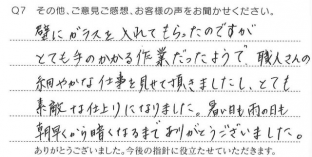 Q7 その他、ご意見ご感想、お客様の声をお聞かせください。
壁にガラスを入れてもらったのですが
とても手のかかる作業だったようで、職人さんの
細やかな仕事を見せて頂きましたし、とても
素敵な仕上りになりました。暑い日も雨の日も
朝早くから暗くなるまでありがとうございました。
ありがとうございました。今後の指針に役立たせていただきます。